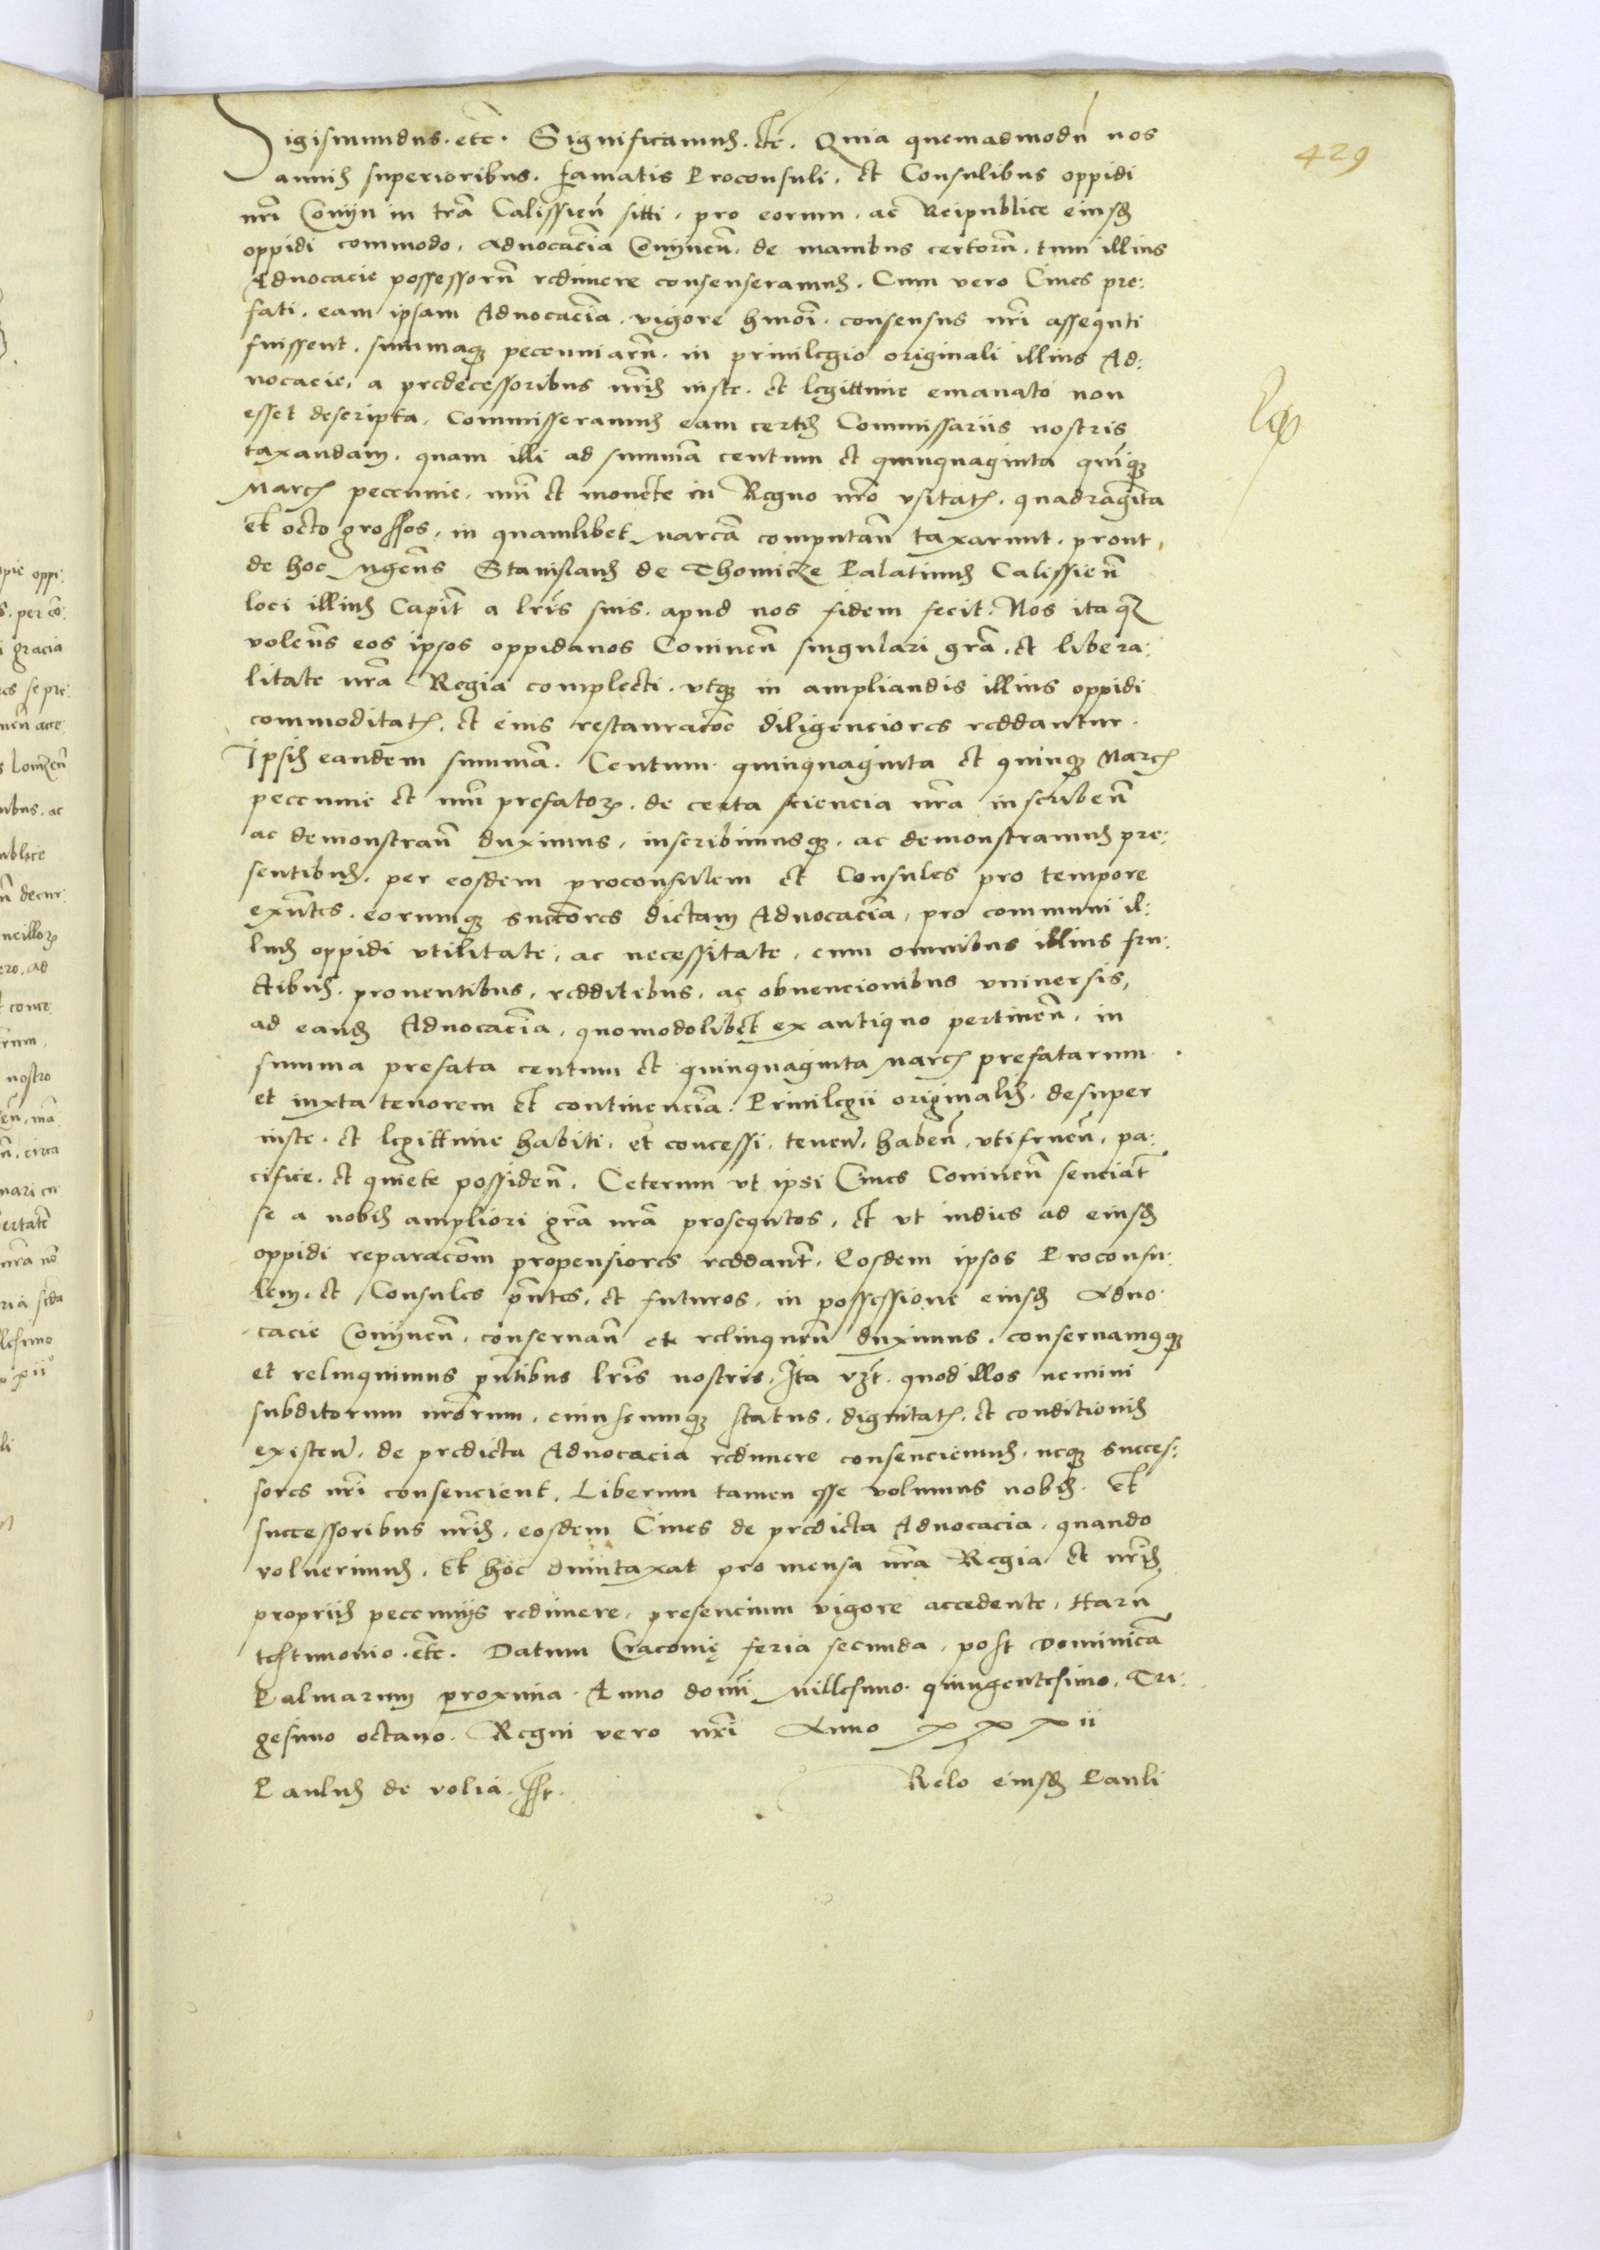 429
Sigismundus. etc. Significamus. etc. Quia quemadmodu nos
annis superioribus. famatis Proconsuli, et Consulibus oppidi
nri Conijn in tra Calissien sitti, pro eorum, ac Reipublice eiusd
oppidi commodo, advocacia Conijnen. de manibus certoru, tum illius
Advocacie possessoru redimere consenseramus. Cum vero Cives pre:
fati, eam ipsam Advocacia, vigore hmoi. consensus nri assequti
fuissent, summaq pecuniaru. in privilegio originali illius Ad:
vocacie, a predecessoribus nris iuste. et legittime emanato non
esset descripta, Commisseramus eam certis Commissariis nostris
taxandam, quam illi ad summa centum et quinquaginta quinq
Marcs pecunie, nui et monete in Regno nro usitats, quadraginta
et octo grossos, in quamlibet marca computan taxarunt, prout
de hoc Mgcus Stanislaus de Thomicze Palatinus Calissien
loci illius Capit a lris suis, apud nos fidem fecit. Nos itaq
volens eos ipsos oppidanos Coninen singulari gra, et libera:
litate nra Regia complecti, utq in ampliandis illius oppidi
commoditats, et eius restauracoe diligenciores reddantur.
Ipsis eandem summa. Centum quinquaginta et quinq Marcs
pecunie et nui prefator, de certa sciencia nra inscriben
ac demonstran duximus, inscribimusq, ac demonstramus pre:
sentibus, per eosdem proconsulem et Consules pro tempore
exntes. eorumq succores dictam Advocacia, pro communi il:
lius oppidi utilitate, ac necessitate, cum omnibus illius fru:
ctibus. proventibus, redditibus, ac obvencionibus universis,
ad eand Advocacia, quomodolibet ex antiquo pertinen, in
summa prefata centum et quinquaginta Marcs prefatarum
et iuxta tenorem et continencia. Privilegii originalis, desuper
iuste. et legittime habiti, et concessi, tenen. haben, utifruen, pa:
cifice. et quiete possiden. Ceterum ut ipsi Cives Coninen senciat
se a nobis ampliori gra nra prosequtos, et ut indies ad eiusd
oppidi reparacom propensiores reddant. Eosdem ipsos Proconsu:
lem, et Consules pntes, et futuros, in possessione eiusd Advo:
cacie Conijnen. conservan et relinquen duximus, conservamusq
et relinquimus pntibus lris nostris. Ita vzt. quod illos nemini
subditorum nrorum, cuiuscumq status, dignitats, et conditionis
existen, de predicta Advocacia redimere consenciemus, neq succes:
sores nri consencient. Liberum tamen esse volumus nobis. Et
successoribus nris, eosdem Cives de predicta Advocacia, quando
voluerimus, Et hoc duntaxat pro mensa nra Regia et nris
propriis pecunijs redimere, presencium vigore accedente. Haru
testimonio. etc. Datum Cracovię feria secunda, post Dominica
Palmarum proxima. Anno domi Millesimo. quingentesimo. Tri:
gesimo octavo. Regni vero nri Anno xxxii
Paulus de volia. sst.
Relo eiusd Pauli